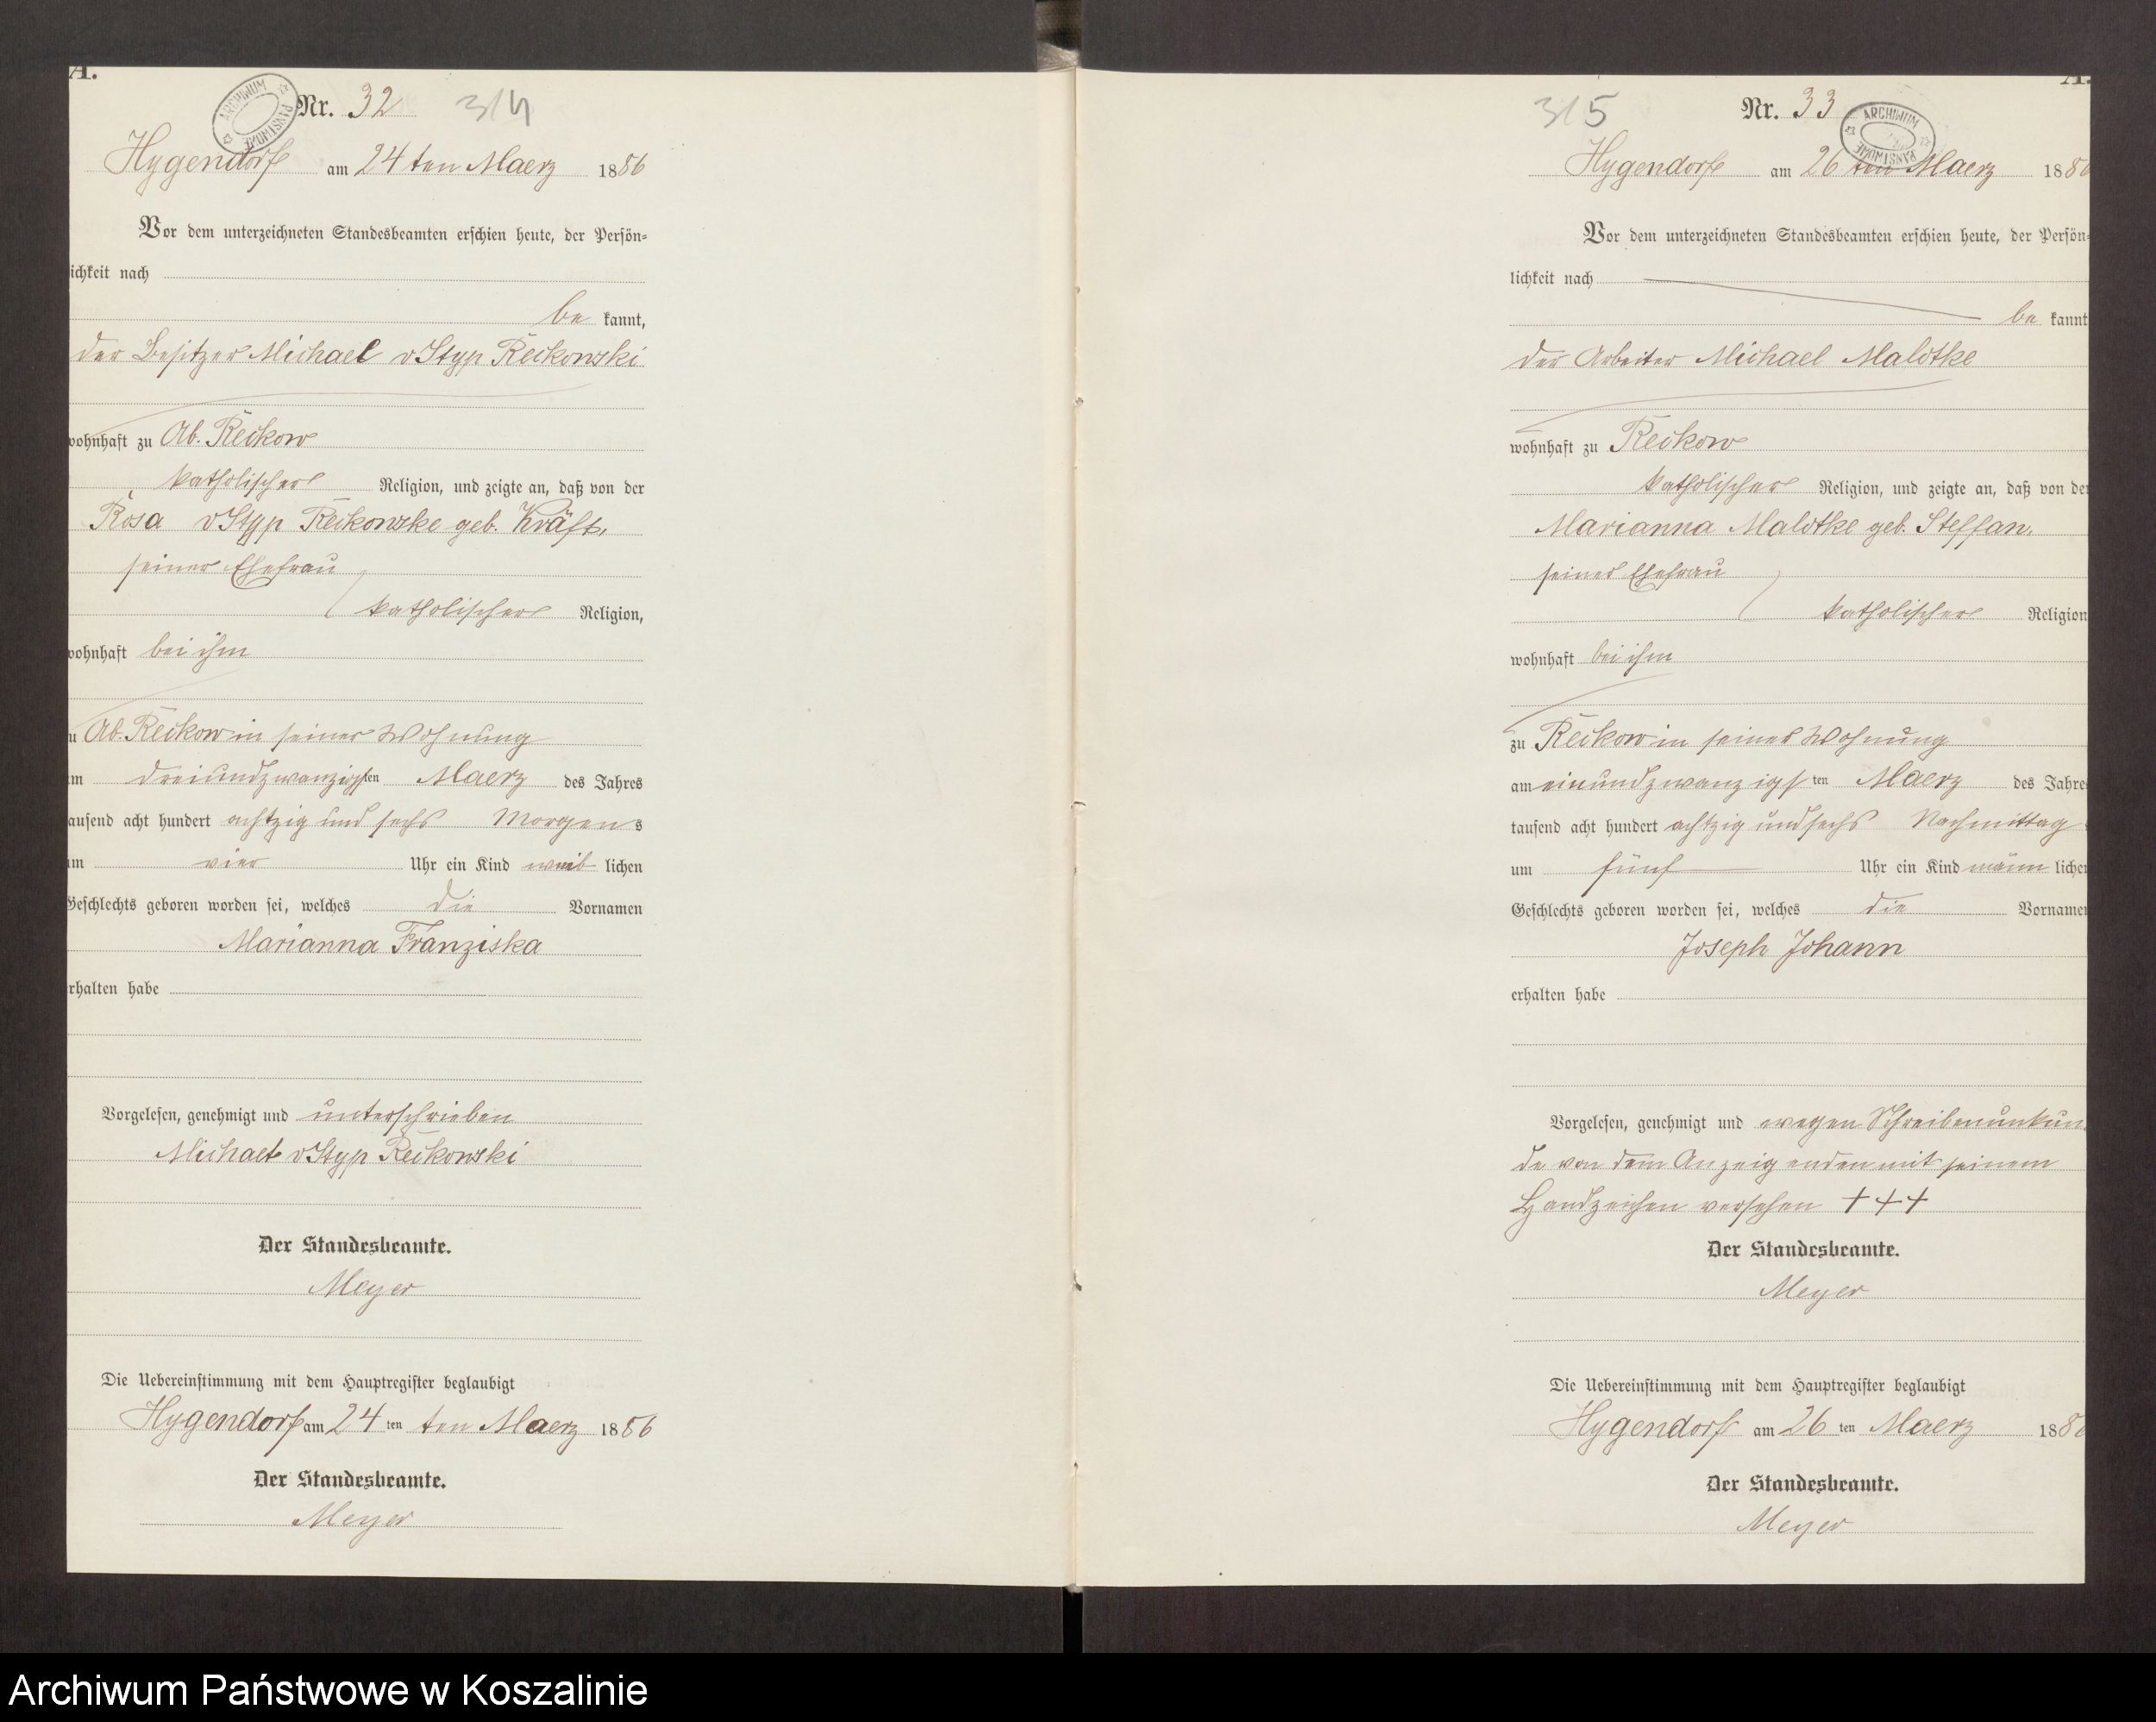 A.
ARCHIWUM PAŃSTWOWE
Nr. 32 314
Hygendorf am 24 ten Maerz 1886
Vor dem unterzeichneten Standesbeamten erschien heute, der Persön-
lichkeit nach
be kannt,
der Besitzer Michael v Styp Reikowski
wohnhaft zu Ab. Reckow
katholischer Religion, und zeigte an, daß von der
Rosa v Styp Reikowske geb. Kräft,
seiner Ehefrau
katholischer Religion,
wohnhaft bei ihm
zu Ab. Reckow in seiner Wohnung
am dreiundzwanzigsten Maerz des Jahres
tausend acht hundert achtzig und sechs Morgens
um vier Uhr ein Kind weib lichen
Geschlechts geboren worden sei, welches die Vornamen
Marianna Franziska
erhalten habe
Vorgelesen, genehmigt und unterschrieben
Michael v Styp Reikowski
Der Standesbeamte.
Meyer
Die Uebereinstimmung mit dem Hauptregister beglaubigt
Hygendorf am 24 ten ten Maerz 1886
Der Standesbeamte.
Meyer
A.
315 Nr. 33
ARCHIWUM PAŃSTWOWE
Hygendorf am 26 ten Maerz 188
Vor dem unterzeichneten Standesbeamten erschien heute, der Persön-
lichkeit nach
be kannt
der Arbeiter Michael Malotke
wohnhaft zu Reckow
katholischer Religion, und zeigte an, daß von der
Marianna Malotke geb. Steffan,
seiner Ehefrau
katholischer Religion
wohnhaft bei ihm
zu Reckow in seiner Wohnung
am einundzwanzigs ten Maerz des Jahres
tausend acht hundert achtzig und sechs Nachmittag
um fünf Uhr ein Kind männ lichen
Geschlechts geboren worden sei, welches die Vornamen
Joseph Johann
erhalten habe
Vorgelesen, genehmigt und wegen Schreibenunkun
de von dem Anzeigenden mit seinem
Handzeichen versehen + + +
Der Standesbeamte.
Meyer
Die Uebereinstimmung mit dem Hauptregister beglaubigt
Hygendorf am 26 ten Maerz 188
Der Standesbeamte.
Meyer
Archiwum Państwowe w Koszalinie